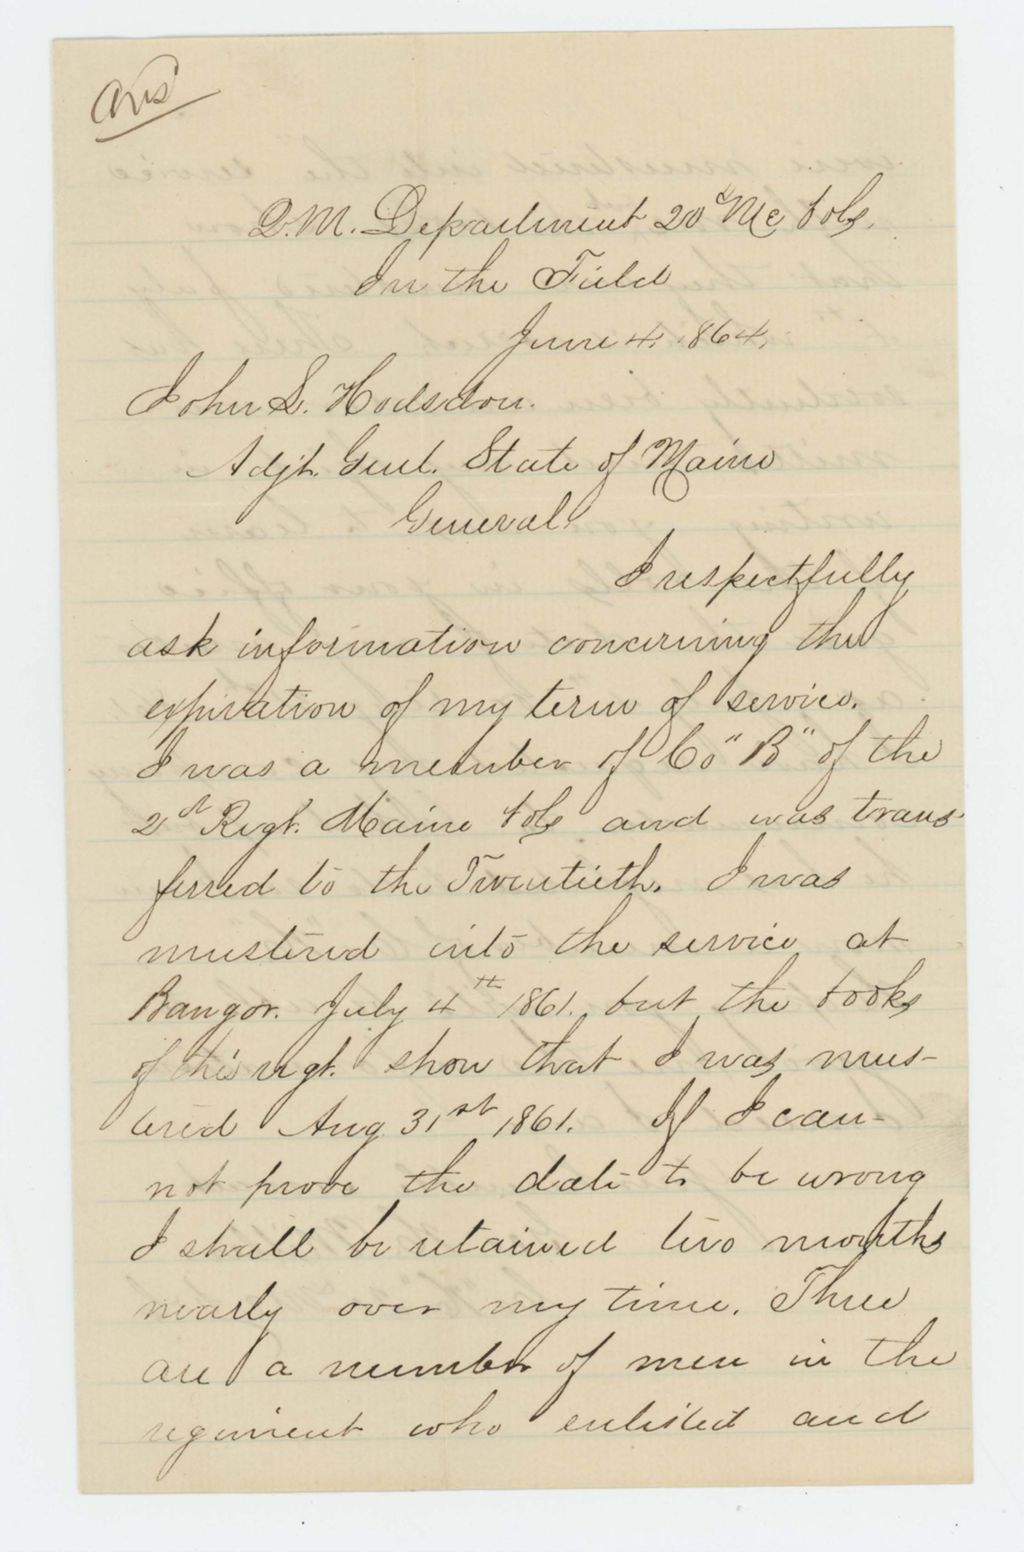 Ans
Q.M. Department 20th Me Vols.
In the Field
June 4, 1864,
John L. Hodsdon.
Adjt. Genl. State of Maine
General
I respectfully
ask information concerning the
expiration of my term of service.
I was a member of Co "B" of the
2d Regt. Maine Vols and was trans-
ferred to the Twentieth. I was
mustered into the service at
Bangor. July 4th 1861. but the books
of this regt. show that I was mus-
tered Aug 31st 1861. If I can-
not prove the date to be wrong
I shall be retained two months
nearly over my time. There
are a number of men in the
regiment who enlisted and